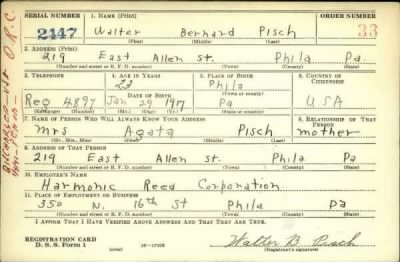 SERIAL NUMBER 1. NAME (Print) ORDER NUMBER
2447 Walter Bernard Pisch 33
(First) (Middle) (Last)
2. ADDRESS (Print)
219 East Allen St. Phila Pa.
(Number and street or R. F. D. number) (Town) (County) (State)
3. TELEPHONE 4. AGE IN YEARS 5. PLACE OF BIRTH 6. COUNTRY OF CITIZENSHIP
23 Phila
DATE OF BIRTH (Town or county)
Reg 4897 Jan 29 1917 Pa USA
(Exchange) (Number) (Mo.) (Day) (Yr.) (State or country)
7. NAME OF PERSON WHO WILL ALWAYS KNOW YOUR ADDRESS 8. RELATIONSHIP OF THAT PERSON
Mrs Agata Pisch mother
(Mr., Mrs., Miss) (First) (Middle) (Last)
9. ADDRESS OF THAT PERSON
219 East Allen St Phila Pa
(Number and street or R. F. D. number) (Town) (County) (State)
10. EMPLOYER'S NAME
Harmonic Reed Corporation
11. PLACE OF EMPLOYMENT OR BUSINESS
350 N. 16th St Phila Pa
(Number and street or R. F. D. number) (Town) (County) (State)
I AFFIRM THAT I HAVE VERIFIED ABOVE ANSWERS AND THAT THEY ARE TRUE.
REGISTRATION CARD
D. S. S. Form 1 (over) Walter B. Pisch
(Registrant's signature)
O R C